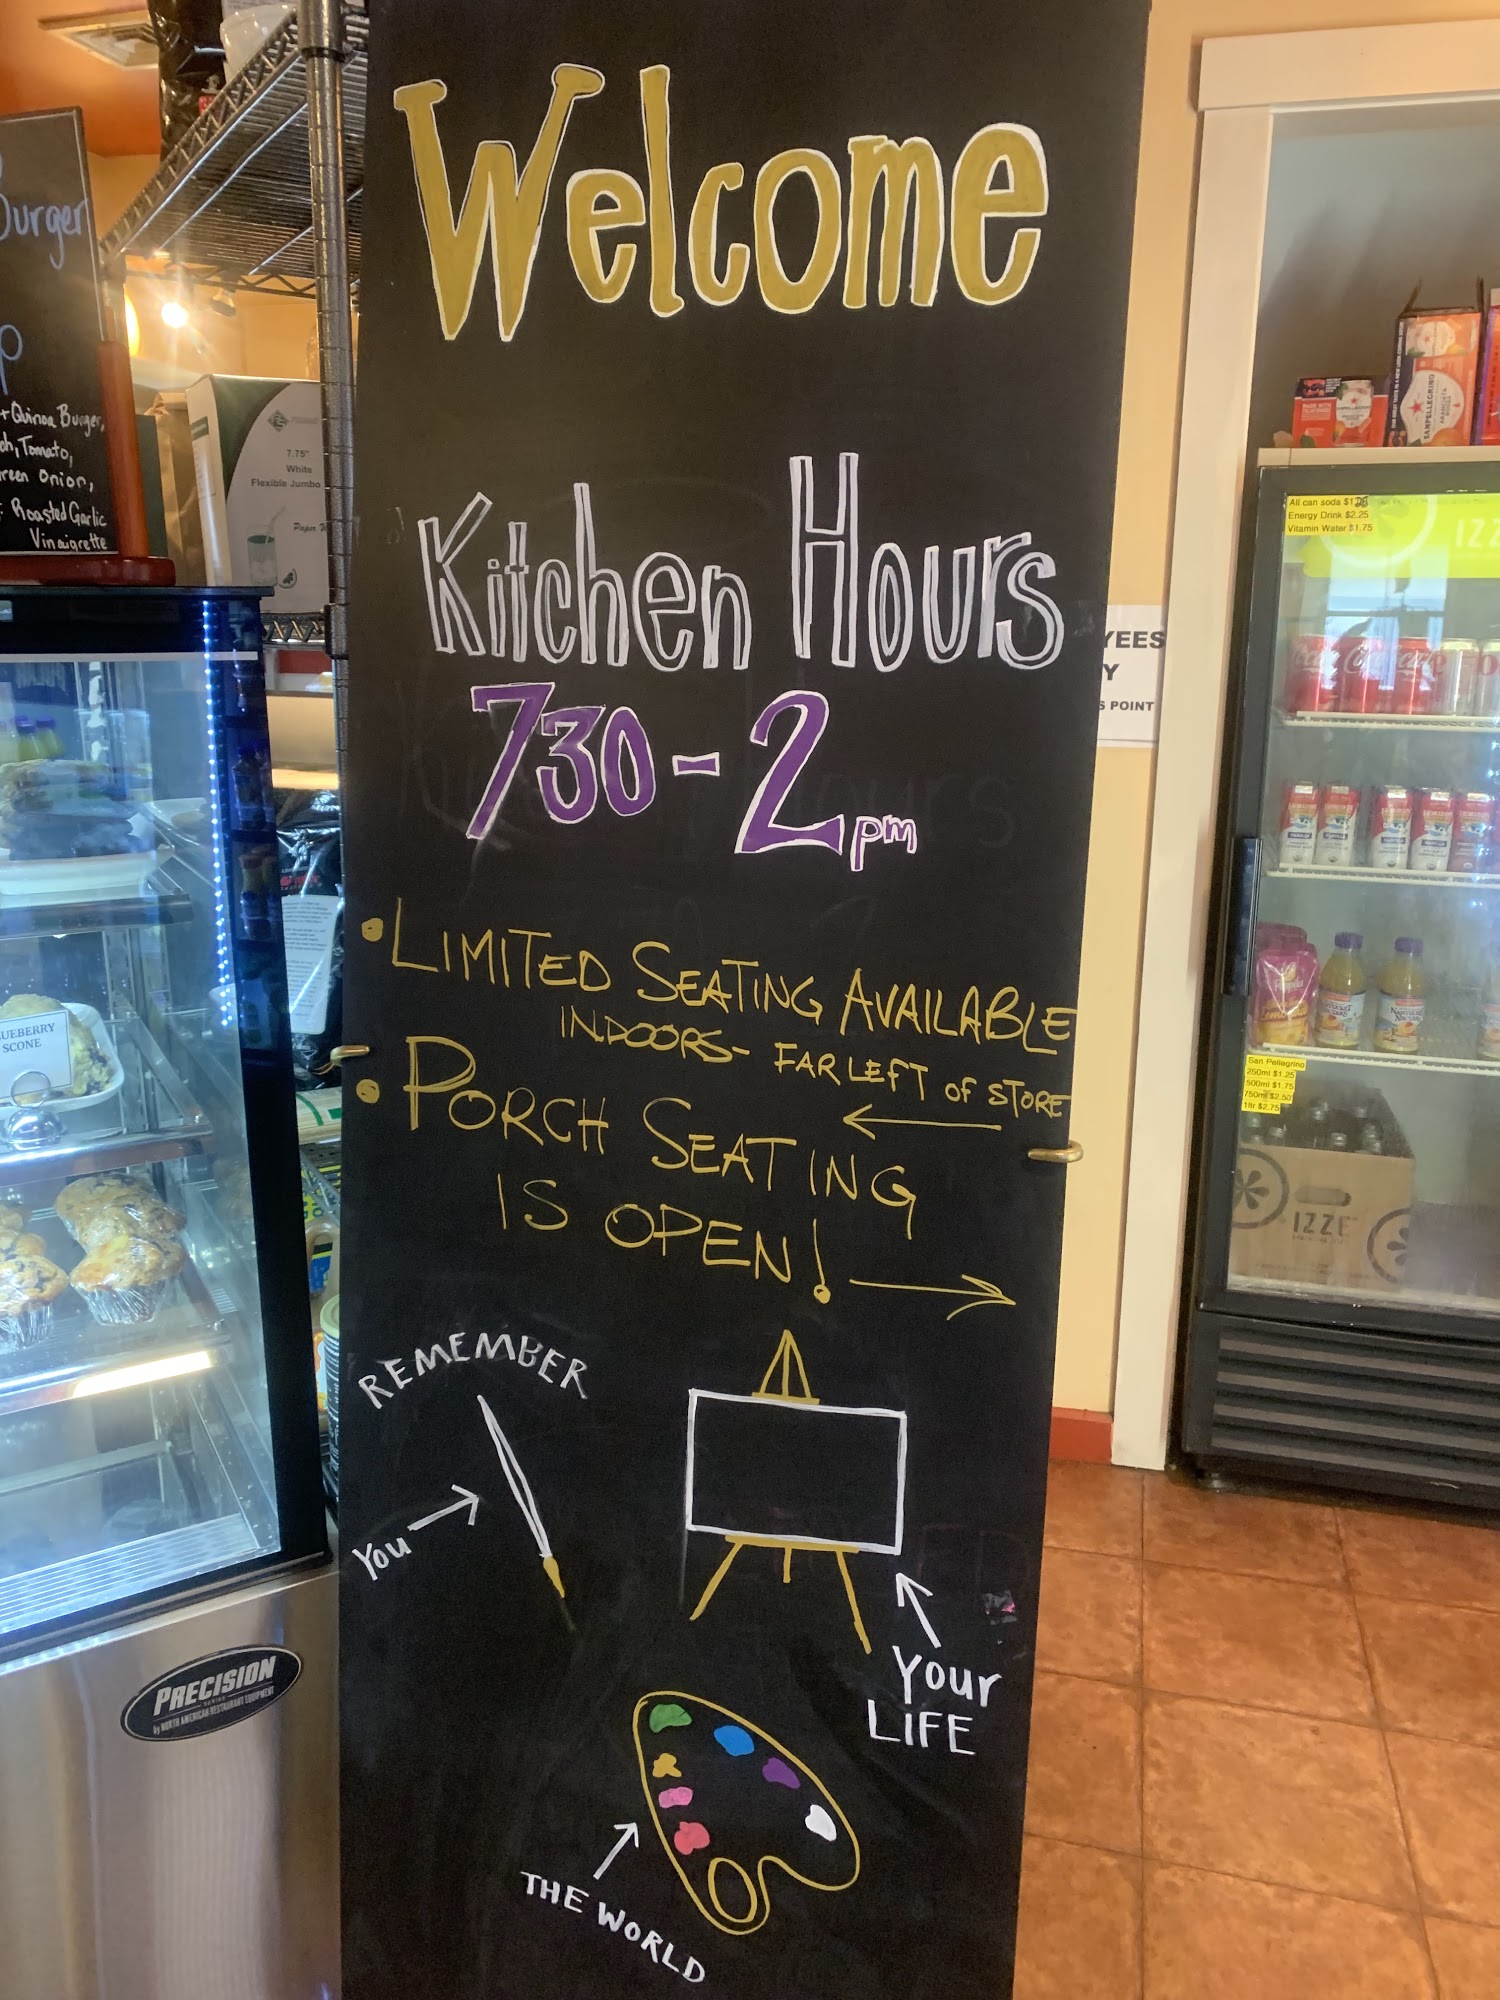 Welcome
Kitchen Hours
730-2pm
• LIMITED SEATING AVAILABLE
INDOORS- FAR LEFT OF STORE
• PORCH SEATING
IS OPEN!
REMEMBER
You
Your
LIFE
THE WORLD
Burger
p
+Quinoa Burger,
Tomato,
reen onion,
Roasted Garlic
Vinaigrette
7.75"
White
Flexible Jumbo
Paper
UEBERRY
SCONE
PRECISION
by NORTH AMERICAN RESTAURANT EQUIPMENT
YEES
Y
S POINT
SANPELLEGRINO
All can soda
Energy Drink $2.25
Vitamin Water $1.75
IZZ
Coca-Cola
San Pellegrino
250ml $1.25
500ml $1.75
750ml $2.50
1ltr $2.75
IZZE